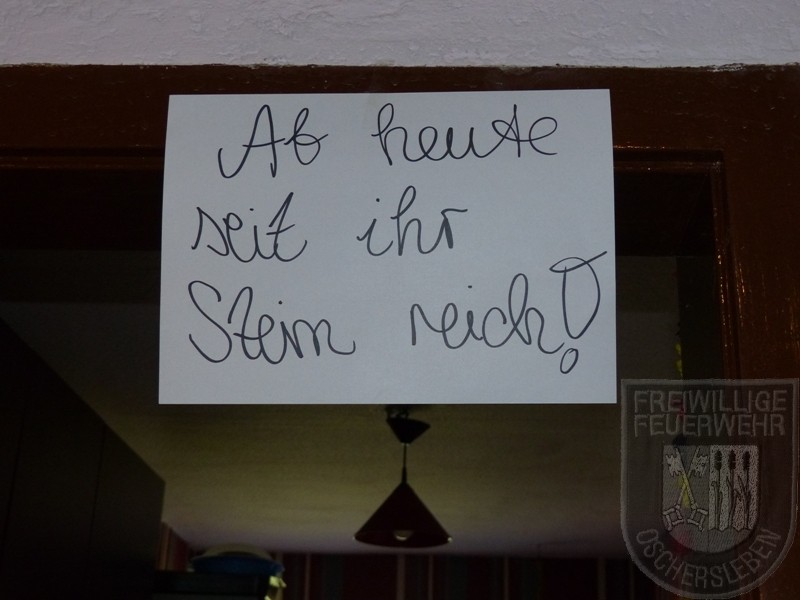 Ab heute
seit ihr
Stein reich!
FREIWILLIGE
FEUERWEHR
OSCHERSLEBEN